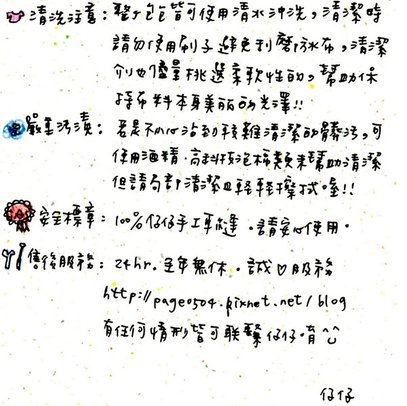 清洗注意：整个包皆可使用清水沖洗，清潔時
請勿使用刷子避免刮磨防水布，清潔
劑也儘量挑選柔軟性的，幫助保
持布料本身美麗的光澤!!
嚴重污漬：若是不小心沾到較難清潔的髒污，可
使用酒精、高科技泡棉類來幫助清潔
但請局部清潔且輕輕擦拭喔!!
安全標章：100%仔仔手工車縫．請安心使用．
售後服務：24hr.全年無休．誠♡服務
http://page0504.pixnet.net/blog
有任何情形皆可聯繫仔仔唷^^
仔仔